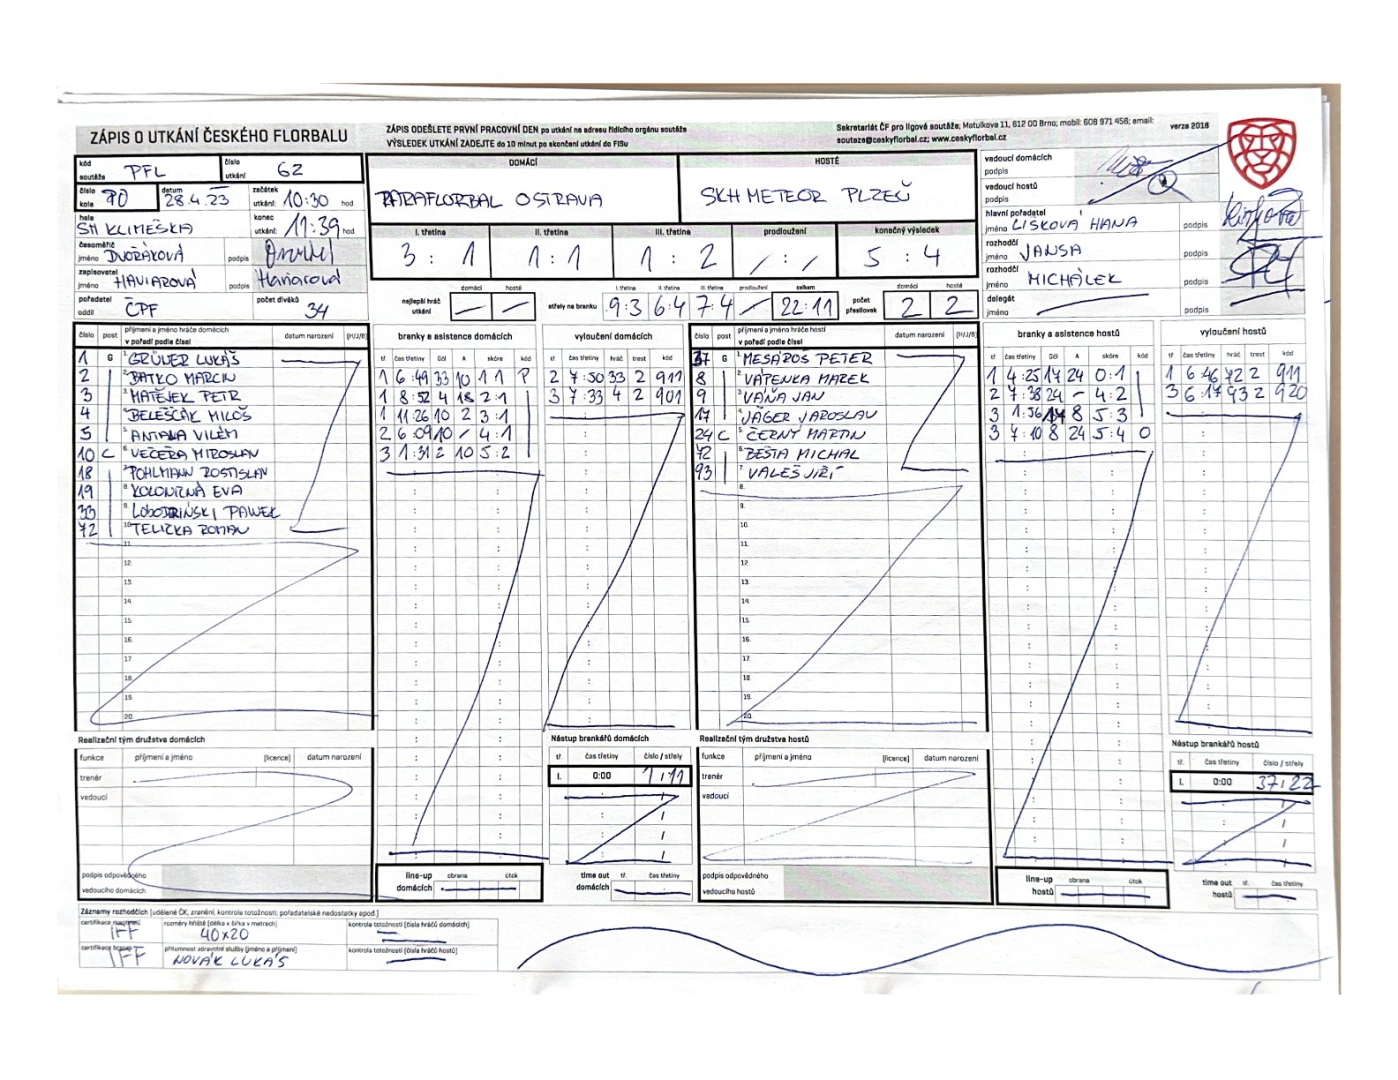 ZÁPIS O UTKÁNÍ ČESKÉHO FLORBALU
ZÁPIS ODEŠLETE PRVNÍ PRACOVNÍ DEN po utkání na adresu řídícího orgánu soutěže
VÝSLEDEK UTKÁNÍ ZADEJTE do 10 minut po skončení utkání do FISu
Sekretariát ČF pro ligové soutěže; Matulkova 11, 612 00 Brno; mobil: 608 971 456; email: soutaze@ceskyflorbal.cz; www.ceskyflorbal.cz
verze 2018
kód soutěže PFL číslo utkání 62
číslo kola datum 28.4.23 začátek utkání: 10:30 hod
hala SH KLIMEŠKA konec utkání: 11:39 hod.
časoměřič jméno DVOŘÁKOVÁ podpis
zapisovatel jméno HAVIAROVÁ podpis Haviarová
pořadatel oddíl ČPF počet diváků 34
DOMÁCÍ HOSTÉ
PARAFLORBAL OSTRAVA SKH METEOR PLZEŇ
I. třetina II. třetina III. třetina prodloužení konečný výsledek
3 : 1 1 : 1 1 : 2 / : / 5 : 4
nejlepší hráč utkání domácí hosté
střely na branku I. třetina II. třetina III. třetina prodloužení celkem
9:3 6:4 7:4 22:11
počet přesilovek domácí hosté 2 2
vedoucí domácích podpis
vedoucí hostů podpis
hlavní pořadatel jméno LÍSKOVÁ HANA podpis
rozhodčí jméno JANSA podpis
rozhodčí jméno MICHÁLEK
delegát jméno podpis
číslo post příjmení a jméno hráče domácích v pořadí podle čísel datum narození (H/J/B)
1 G 1. GRÜNER LUKÁŠ
2 2. BATKO MARCIN
3 3. MATĚJEK PETR
4 4. BELEŠČÁK MILOŠ
5 5. ANTALA VILÉM
10 C 6. VEČEŘA MIROSLAV
18 7. POHLMANN ROSTISLAV
19 8. KOLONIČNÁ EVA
33 9. PAWEŁ
72 10. TELIČKA ROMAN
11.
12.
13.
14.
15.
16.
17.
18.
19.
20.
branky a asistence domácích
tř čas třetiny Gól A skóre kód
1 6:49 33 10 1 1 P
1 8:52 4 18 2:1
1 11:26 10 2 3:1
2 6:09 10 - 4:1
3 1:31 2 10 5:2
vyloučení domácích
tř čas třetiny hráč trest kód
2 7:50 33 2 911
3 7:33 4 2 901
číslo post příjmení a jméno hráče hostí v pořadí podle čísel datum narození (H/J/B)
37 G 1. MESÁROŠ PETER
8 2. VÁPENKA MAREK
9 3. VÁŇA JAN
17 4. JÄGER JAROSLAV
24 C 5. ČERNÝ MARTIN
72 6. BEŠTA MICHAL
93 7. VALEŠ JIŘÍ
8.
9.
10.
11.
12.
13.
14.
15.
16.
17.
18.
19.
20.
branky a asistence hostů
tř čas třetiny Gól A skóre kód
1 4:25 17 24 0:1
2 7:38 24 - 4:2
3 1:56 17 8 5:3
3 7:10 8 24 5:4 0
vyloučení hostů
tř čas třetiny hráč trest kód
1 6:46 72 2 911
3 6:17 93 2 920
Realizační tým družstva domácích
funkce příjmení a jméno (licence) datum narození
trenér
vedoucí
podpis odpovědného vedoucího domácích
Nástup brankářů domácích
tř. čas třetiny číslo / střely
I. 0:00 1 / 11
line-up domácích obrana útok
time out domácích tř. čas třetiny
Realizační tým družstva hostů
funkce příjmení a jméno (licence) datum narození
trenér
vedoucí
podpis odpovědného vedoucího hostů
Nástup brankářů hostů
tř. čas třetiny číslo / střely
I. 0:00 37 / 22
line-up hostů obrana útok
time out hostů tř. čas třetiny
Záznamy rozhodčích (udělené ČK; zranění, kontrola totožnosti; pořadatelské nedostatky apod.)
certifikace mantinelů IFF rozměry hřiště (délka x šířka v metrech) 40x20 kontrola totožnosti (čísla hráčů domácích)
certifikace branek IFF přítomnost zdravotní služby (jméno a příjmení) NOVÁK LUKÁŠ kontrola totožnosti (čísla hráčů hostů)